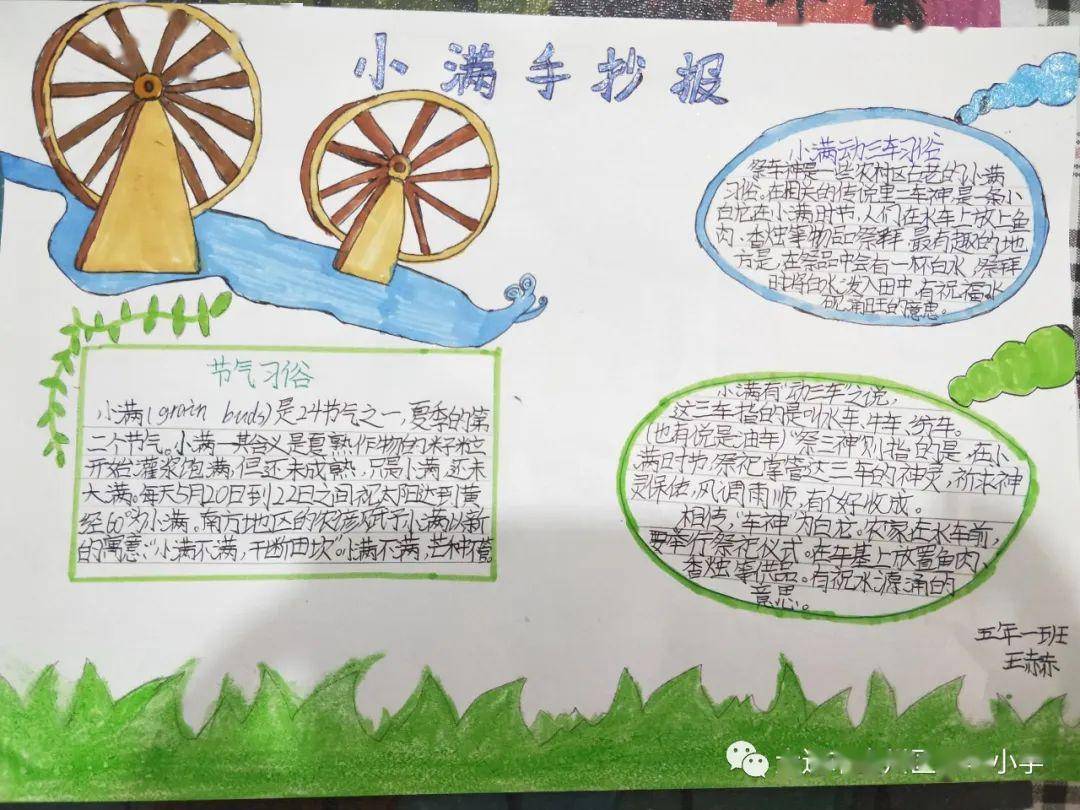 小满手抄报
小满动三车习俗
祭车神是一些农村区古老的小满
习俗。在相关的传说里二车神是一条小
白龙在小满时节,人们在水车上放上鱼
肉、香烛等物品祭拜,最有趣的地
方是,在祭品中会有一杯白水,祭拜
时将白水泼入田中,有祝福水
涌旺的意思。
节气习俗
小满(grain buds)是24节气之一,夏季的第
二个节气。小满一其含义是夏熟作物的籽粒
开始灌浆饱满,但还未成熟,只是小满,还未
大满。每天5月20日到22日之间视太阳达到黄
经60°为小满。南方地区的农谚赋予小满以新
的寓意:“小满不满,干断田坎”“小满不满,芒种不管
小满有“动三车”之说,
这三车指的是水车、牛车、纺车。
(也有说是油车)“祭三神”则指的是,在小
满时节,祭祀掌管这三车的神灵,祈求神
灵保佑,风调雨顺,有个好收成。
相传,“车神”为白龙。农家在水车前,
要举行祭祀仪式。在车基上放置鱼肉、
香烛等供品。有祝水源涌的
意思。
五年一班
王赫赤
小学